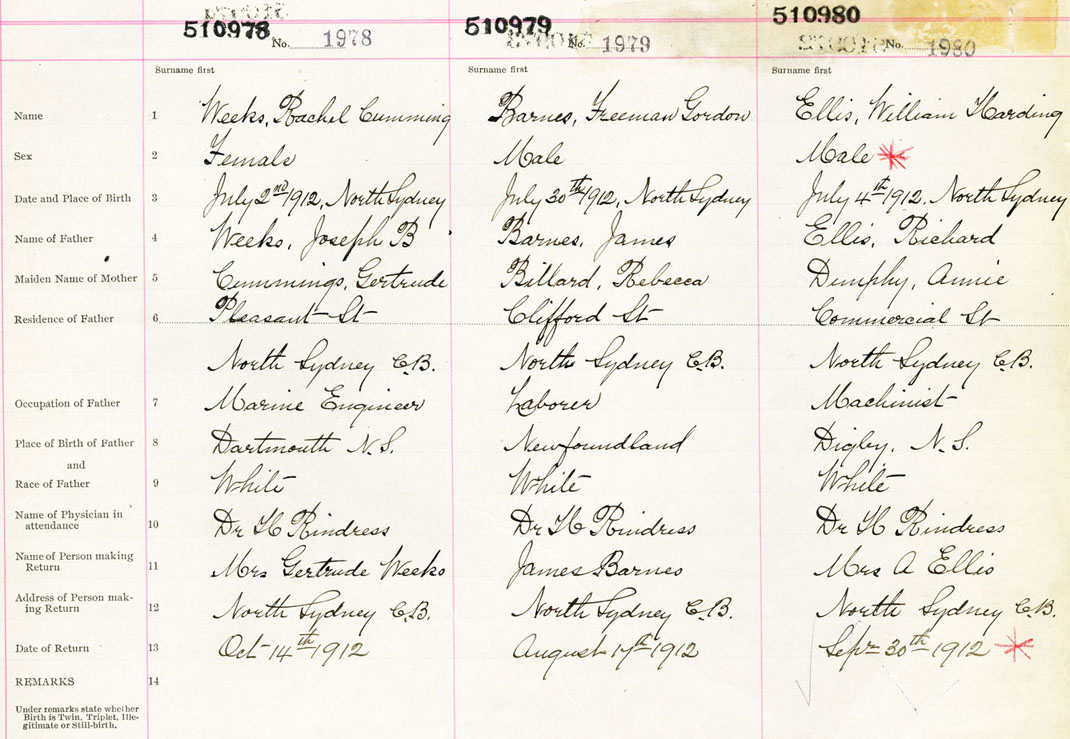 510978 510979 510980
No. 1978 No. 1979 No. 1980
Surname first Surname first Surname first
Name 1 Weeks, Rachel Cumming Barnes, Freeman Gordon Ellis, William Harding
Sex 2 Female Male Male
Date and Place of Birth 3 July 2nd 1912, North Sydney July 30th 1912, North Sydney July 4th 1912, North Sydney
Name of Father 4 Weeks, Joseph B Barnes, James Ellis, Richard
Maiden Name of Mother 5 Cummings, Gertrude Billard, Rebecca Dumphy, Annie
Residence of Father 6 Pleasant St Clifford St Commercial St
North Sydney C.B. North Sydney C.B. North Sydney C.B.
Occupation of Father 7 Marine Engineer Laborer Machinist
Place of Birth of Father 8 Dartmouth N.S. Newfoundland Digby. N.S.
and
Race of Father 9 White White White
Name of Physician in
attendance 10 Dr H Rindress Dr H Rindress Dr H Rindress
Name of Person making
Return 11 Mrs Gertrude Weeks James Barnes Mrs A Ellis
Address of Person mak-
ing Return 12 North Sydney C.B. North Sydney C.B. North Sydney C.B.
Date of Return 13 Oct 14th 1912 August 1912 Sepr 30th 1912
REMARKS 14
Under remarks state whether
Birth is Twin, Triplet, Ille-
gitimate or Still-birth.